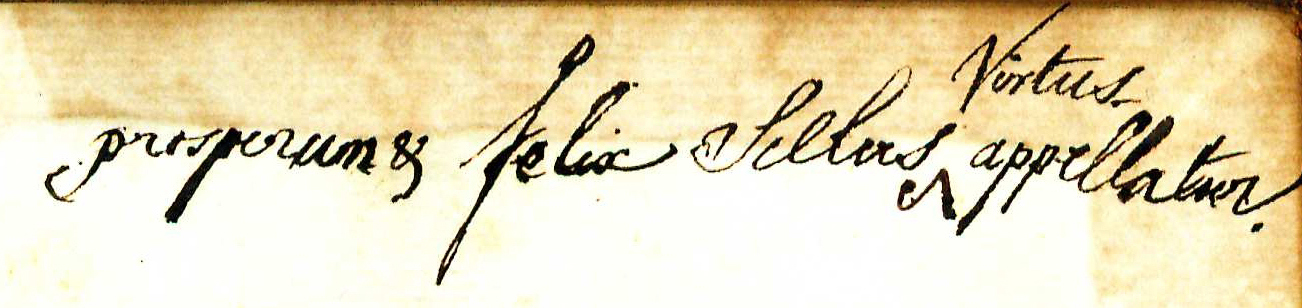 prosperum & felix Scelus Virtus appellatur.